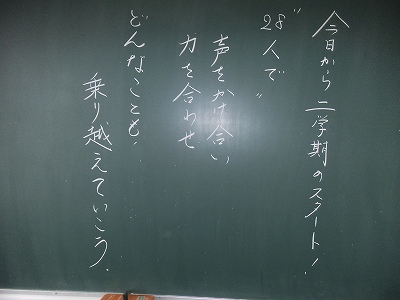 今日から二学期のスタート！
"28人で"
声をかけ合い
力を合わせ
どんなことも、
乗り越えていこう．